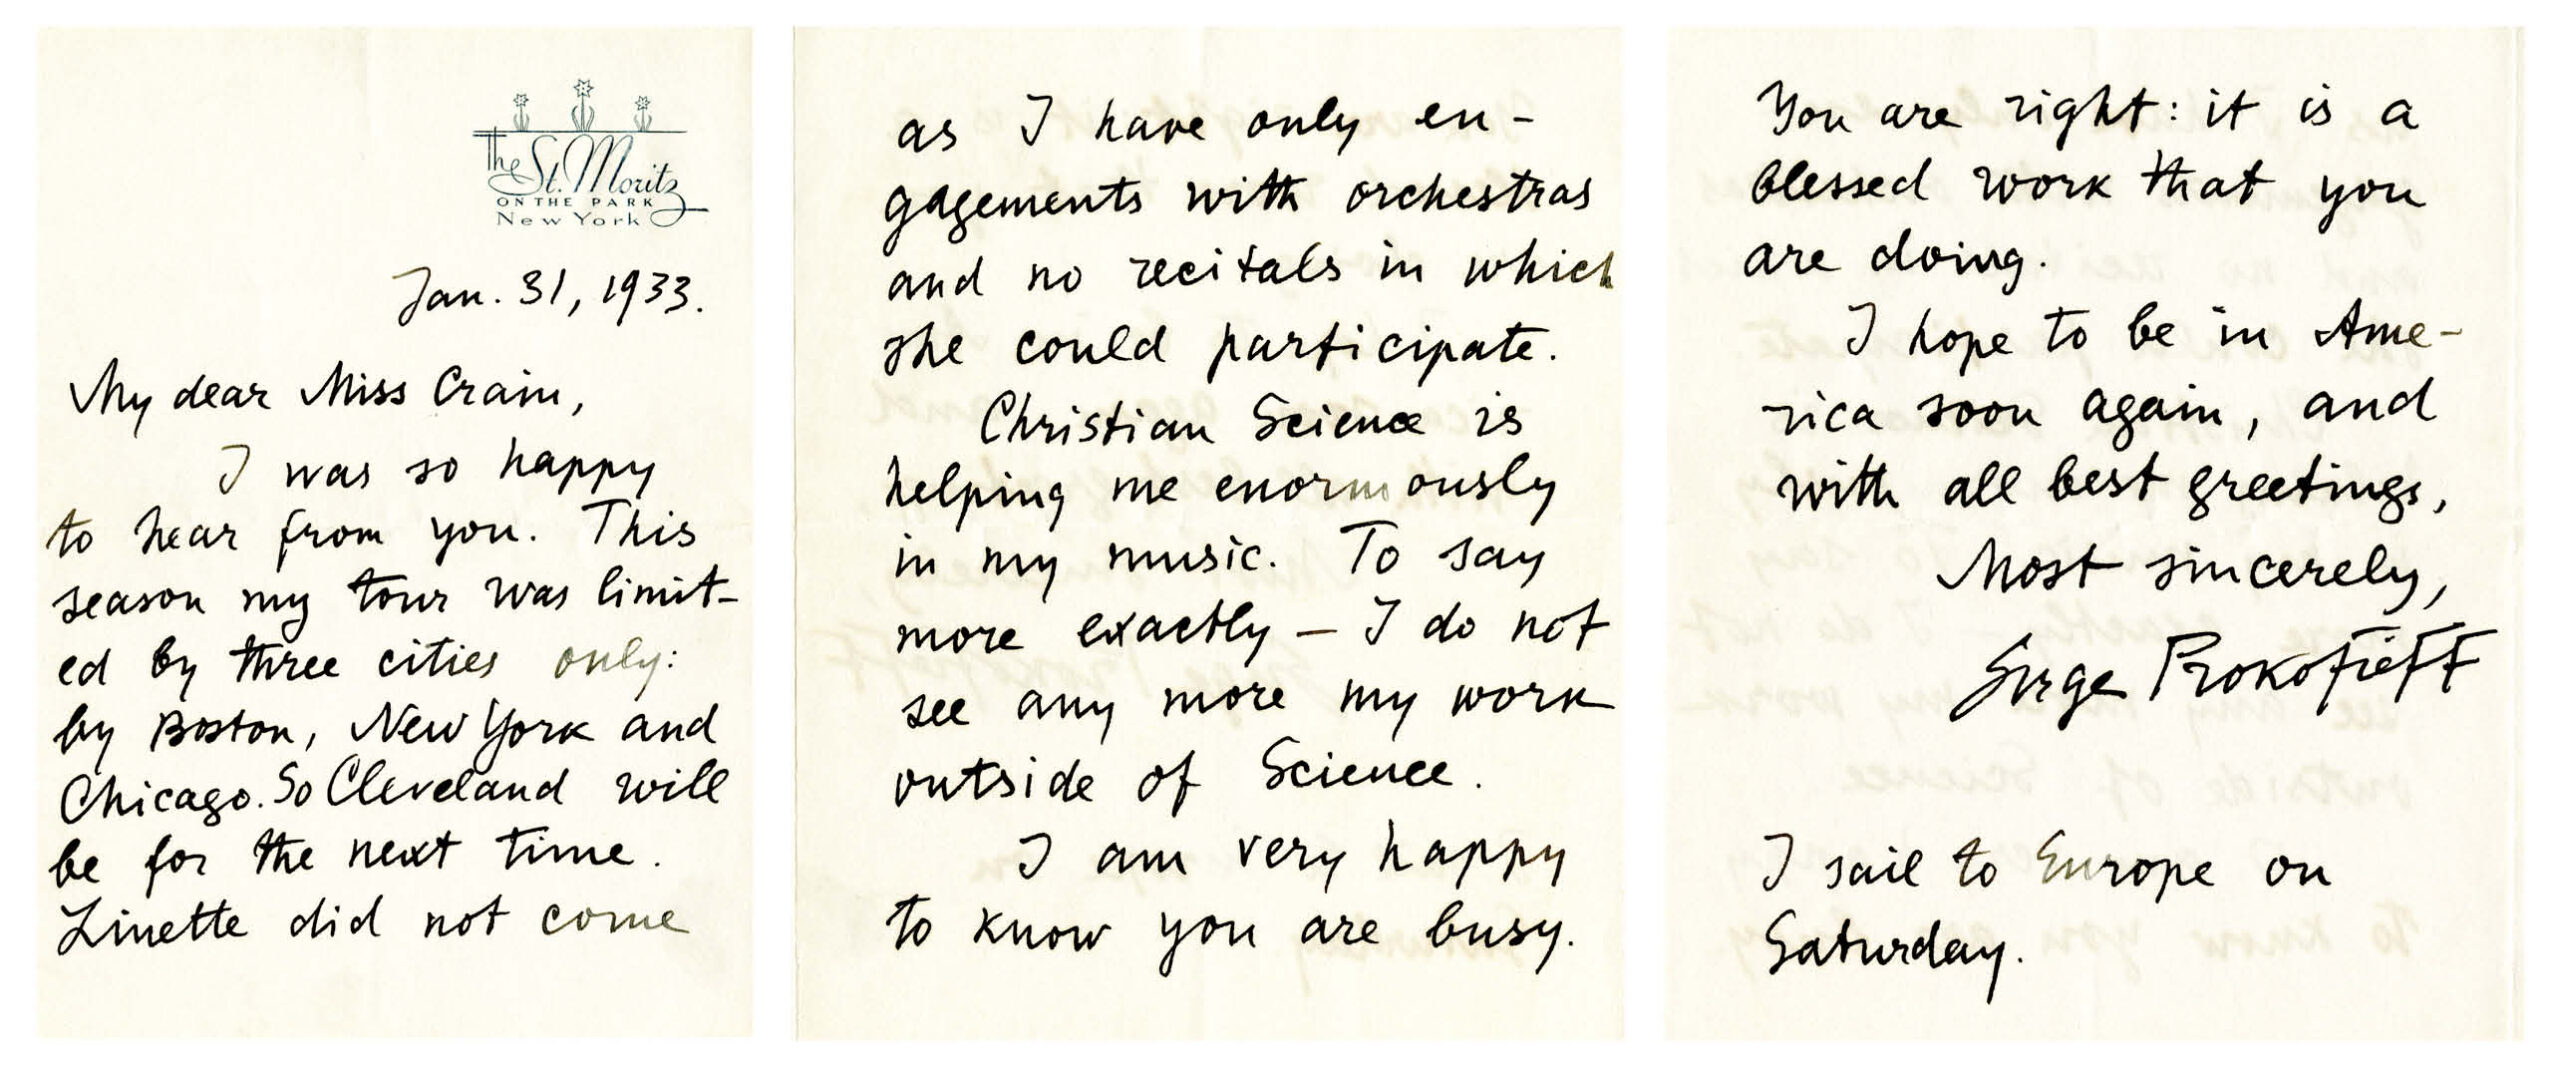 The St. Moritz
ON THE PARK
New York
Jan. 31, 1933.
My dear Miss Crain,
I was so happy
to hear from you. This
season my tour was limit-
ed by three cities only:
by Boston, New York and
Chicago. So Cleveland will
be for the next time.
Linette did not come
as I have only en-
gagements with orchestras
and no recitals in which
she could participate.
Christian Science is
helping me enormously
in my music. To say
more exactly – I do not
see any more my work
outside of Science.
I am very happy
to know you are busy.
You are right: it is a
blessed work that you
are doing.
I hope to be in Ame-
rica soon again, and
with all best greetings,
Most sincerely,
Serge Prokofieff
I sail to Europe on
Saturday.